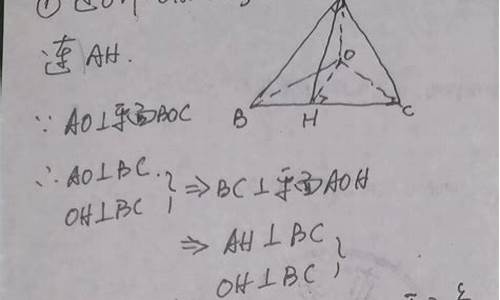 连AH.
O
B H C
∵ AO⊥平面BOC
∴ AO⊥BC
OH⊥BC } ⇒ BC⊥平面AOH
⇒ AH⊥BC
OH⊥BC }